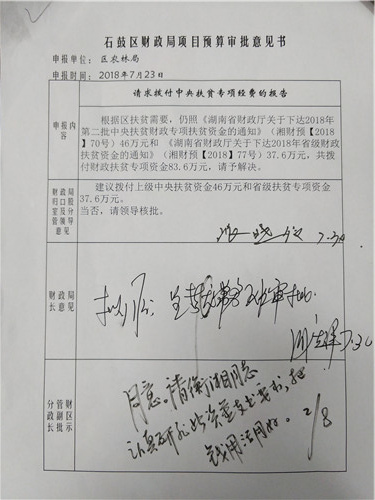 石鼓区财政局项目预算审批意见书
申报单位：区农林局
申报时间：2018年7月23日
申报内容
请求拨付中央扶贫专项经费的报告
根据区扶贫需要，仍照《湖南省财政厅关于下达2018年
第二批中央扶贫财政专项扶贫资金的通知》（湘财预【2018
】70号）46万元和 《湖南省财政厅关于下达2018年省级财政
扶贫资金的通知》（湘财预【2018】77号）37.6万元，共拨
付财政扶贫资金83.6万元，请予解决。
财政局归口股室及分管领导意见
建议拨付上级中央扶贫资金46万元和省级扶贫专项资金
37.6万元。
当否，请领导核批。
7.30
财政局长意见
审批
7.30
分管财政副区长批示
同意。请衡湘同志
认真研究此资金支出
钱用活用好。2/8